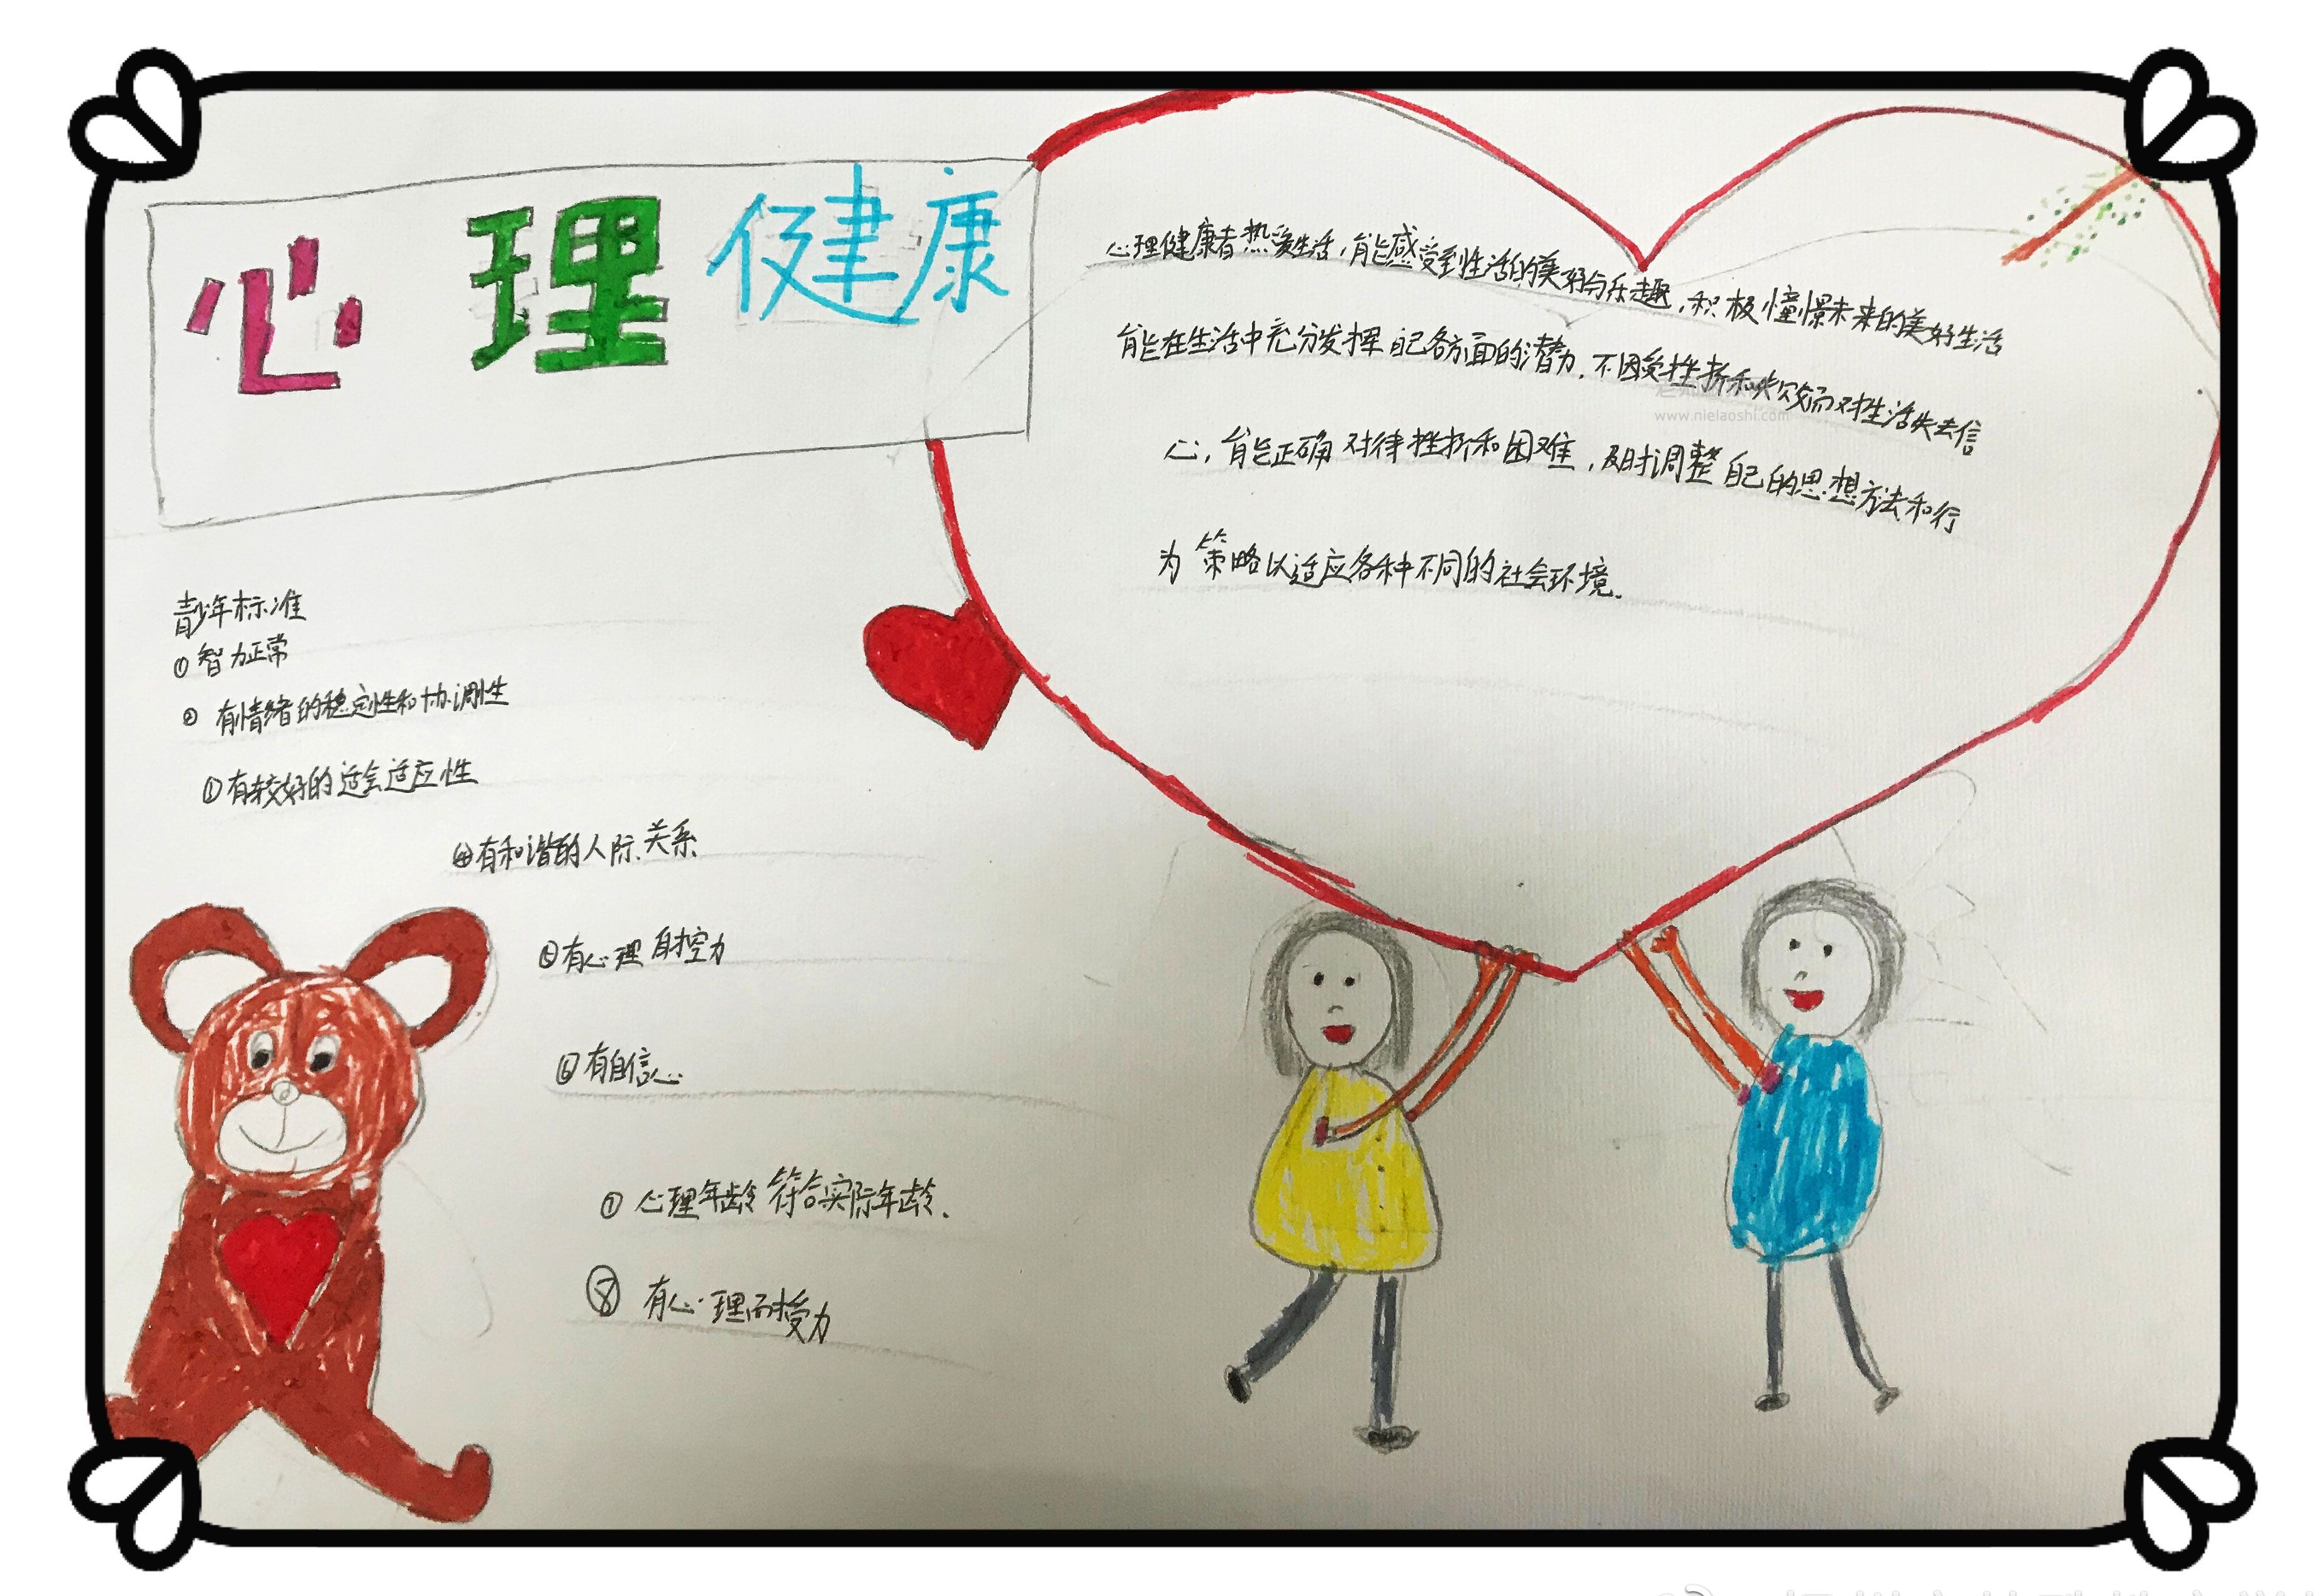 心理健康
心理健康者热爱生活,能感受到生活的美好与乐趣,积极憧憬未来的美好生活
能在生活中充分发挥自己各方面的潜力.不因受挫折和失败而对生活失去信
www.nielaoshi.com
心,能正确对待挫折和困难,及时调整自己的思想方法和行
为策略以适应各种不同的社会环境.
青少年标准
①智力正常
②有情绪的稳定性和协调性
①有较好的适会适应性
④有和谐的人际关系
⑤有心理自控力
⑥有自信心
⑦心理年龄符合实际年龄.
⑧有心理耐受力